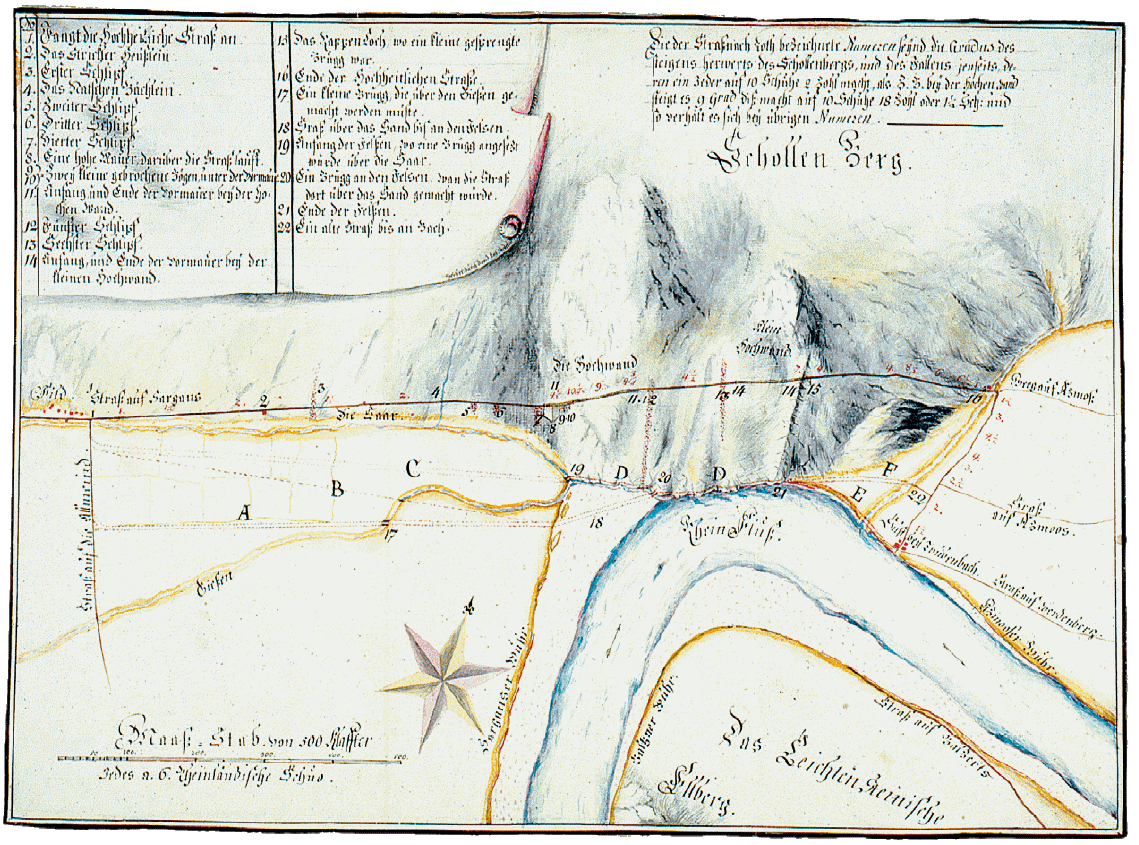 No
1. Fangt die Hochheitliche Straß an.
2. Das Stricher Heüßlein.
3. Erster Schlipf.
4. Das Nätschen Bächlein.
5. Zweiter Schlipf.
6. Dritter Schlipf.
7. Vierter Schlipf.
8. Eine hohe Mauer, darüber die Straß laufft.
9. 10. Zweÿ kleine gebrochene Bögen, unter der Vormauer
11. Anfang und Ende der Vormauer beÿ der Ho-
chen Wand.
12 Fünfter Schlipf.
13 Sechster Schlipf.
14 Anfang und Ende der Vormauer beÿ der
kleinen Hochwand.
15 Das Rappen Loch, wo ein kleine gesprengte
Brügg war.
16 Ende der Hochheitlichen Straße.
17 Ein kleine Brügg, die über den Gießen ge-
macht werden müste.
18 Straß über das Sand bis an den Felsen
19 Anfang der Felsen, wo eine Brügg angesezt
würde über die Saar.
20 Ein Brügg an den Felsen, wan die Straß
dort über das Sand gemacht würde.
21 Ende der Felsen.
22 Ein alte Straß bis an Bach.
Die der Straß nach roth bezeichnete Numeren seÿnd die Gradus des
steigens herwerts des Schollenbergs, und des Fallens jenseits, de-
ren ein jeder auf 10 Schuhe 2 Zohl macht, als Z. B. beÿ der Hochen Wand
steigt es 9 Grad diß macht auf 10 Schuhe 18 Zohl oder 1½ Sch: und
so verhält es sich beÿ übrigen Numeren.
Schollen Berg.
Klein
Hochwand
Die Hochwand
Fild
Straß auf Sargans
Die Saar
2 3 4 5 6 7 8 9 10 11 11 12 13 14 14 15 16
Berg auf Azmoß
A B C D D E F
17 18 19 20 21 22
Straß auf die Allmeind
Giesen
Rhein Fluß.
Straß
auf Azmoos.
Straß auf Werdenberg.
Azmooser Wuhr.
Sarganser Wuhr
Balzner Wuhr.
Straß auf Balzers
Das
Leichten steinische
Ellberg.
Maaß-Stab von 500 Klaffter
100. 200. 300. 400. 500.
Jedes a. 6. Rheinländische Schuo.